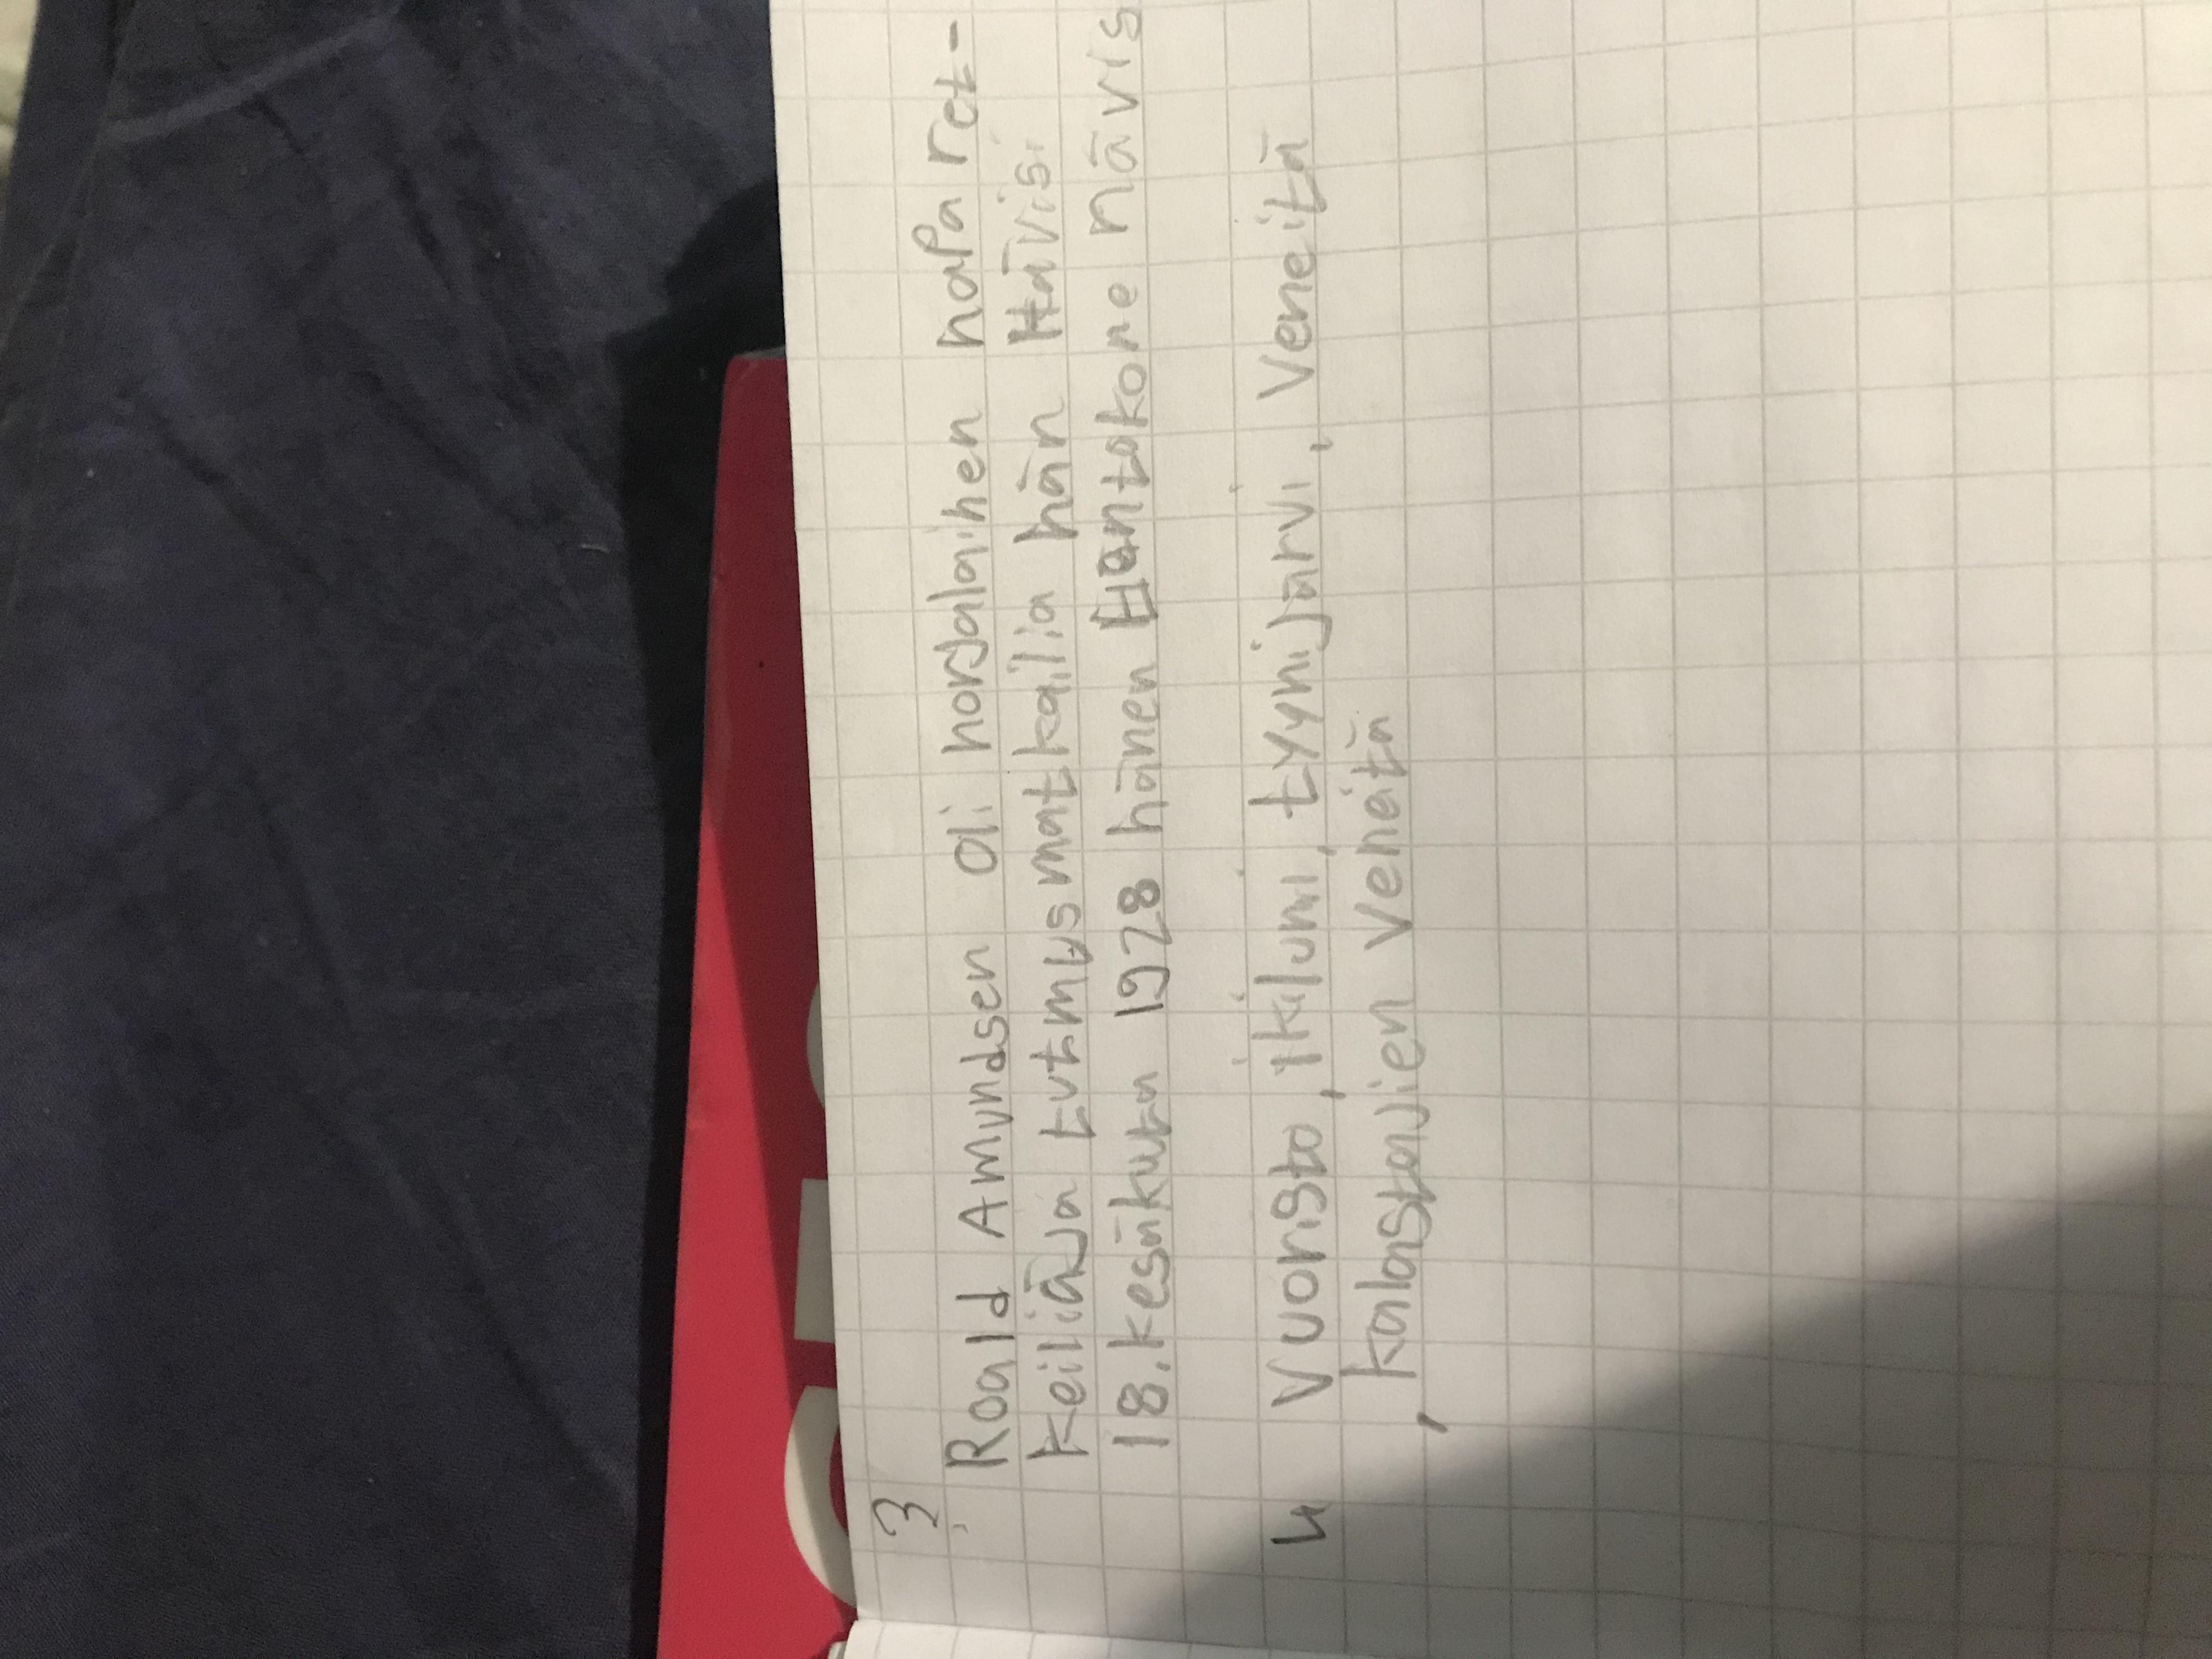 3. Roald Amundsen oli norjalainen napa ret-
keiliäjä tutmusmatkailia hän Hävisi
18.kesäkuta 1928 hänen lentokone hävis
4 Vuoristo, ikilumi, tyynijärvi, Veneitä
, kalastajien Veneitä